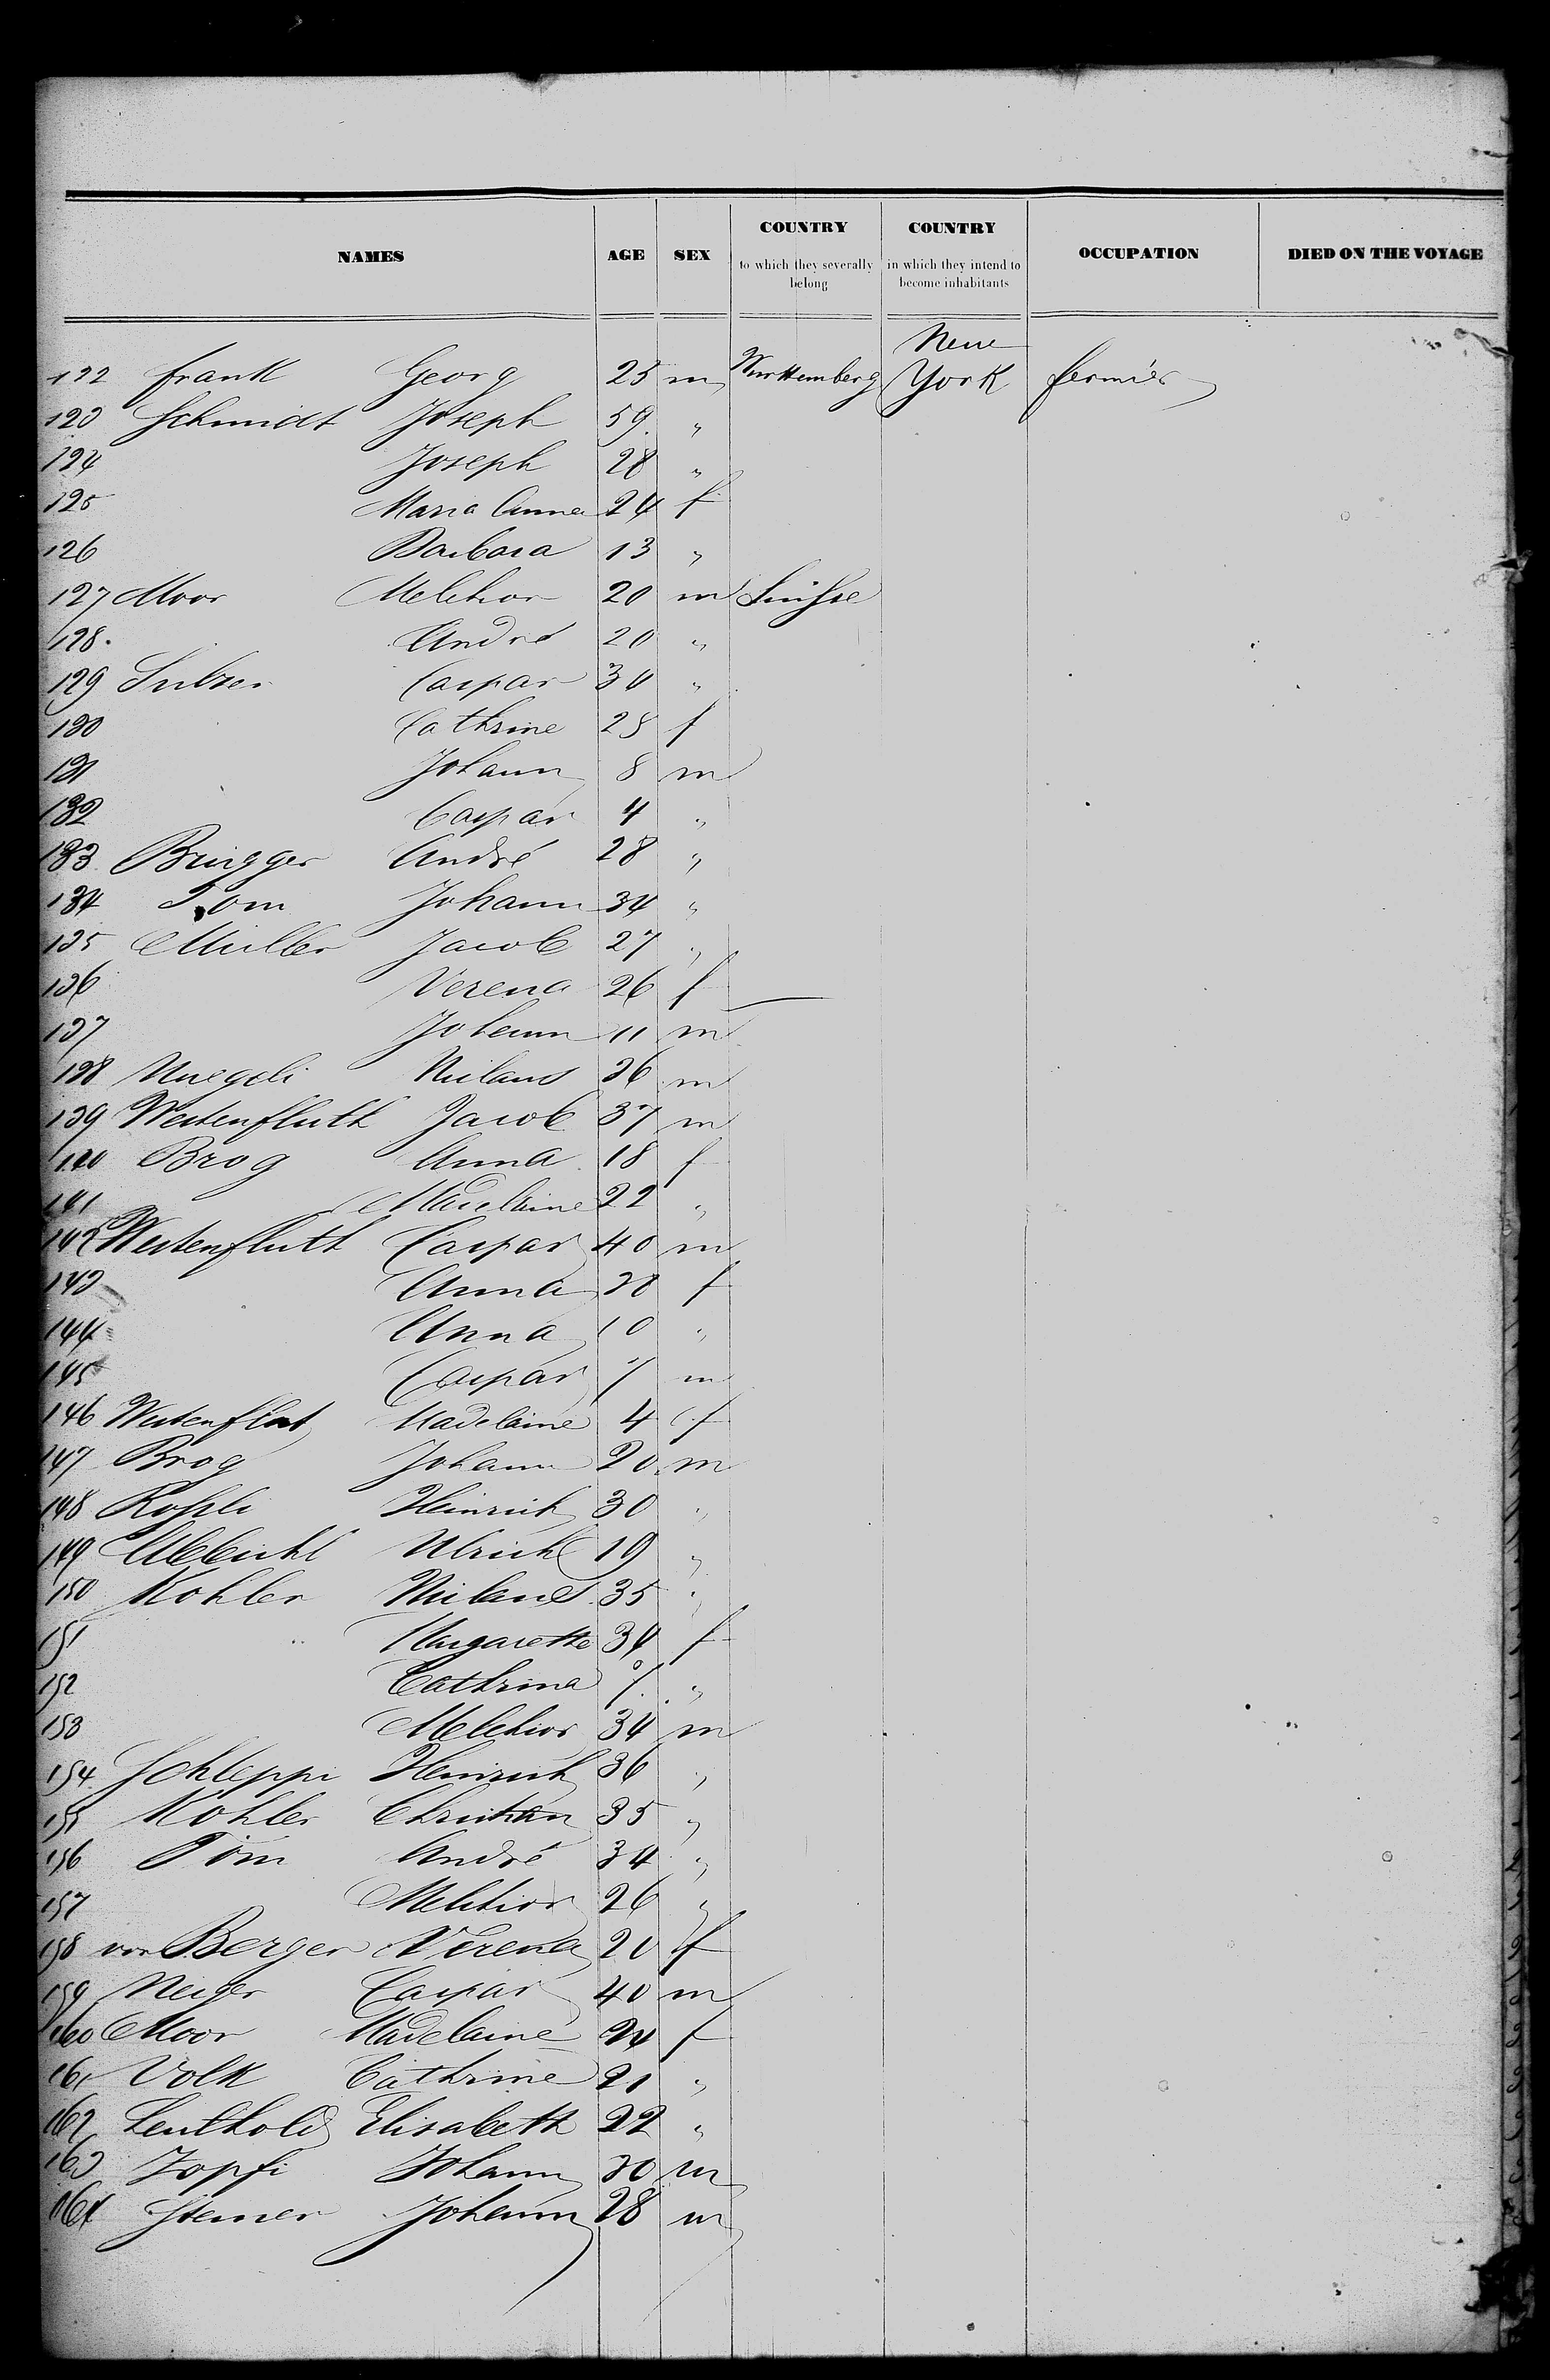 NAMES AGE SEX COUNTRY to which they severally belong COUNTRY in which they intend to become inhabitants OCCUPATION DIED ON THE VOYAGE
Neue
122 Frank Georg 25 m Württemberg York fermier
123 Schmidt Joseph 59 "
124 Joseph 28 "
125 Maria Anna 24 f
126 Barbara 13 "
127 Moor Melchior 20 m Suisse
128. André 20 "
129 Sulzer Caspar 30 "
130 Cathrine 28 f
131 Johann 8 m
132 Caspar 4 "
133 Brügger André 28 "
134 Tom Johann 34 "
135 Müller Jacob 27 "
136 Verena 26 f
137 Johann 11 m
138 Naegeli Niclaus 36 m
139 Westenfluth Jacob 37 m
140 Brog Anna 18 f
141 Madelaine 22 "
142 Westenfluth Caspar 40 m
143 Anna 38 f
144 Anna 10 "
145 Caspar 7 m
146 Westenflut Madelaine 4 f
147 Brog Johann 20 m
148 Kohli Heinrich 30 "
149 Ulrich 19 "
150 Kohler Niclaus 35 "
151 Margarettte 34 f
152 Cathrina 7 "
153 Melchior 34 m
154 Schleppi Heinrich 36 "
155 Kohler Christian 35 "
156 Tom André 34 "
157 Melchior 26 "
158 von Bergen Verena 20 f
159 Neiger Caspar 40 m
160 Moor Madelaine 24 f
161 Volk Cathrine 21 "
162 Leuthold Elisabeth 22 "
163 Zopfi Johann 30 m
164 Steiner Johann 28 m